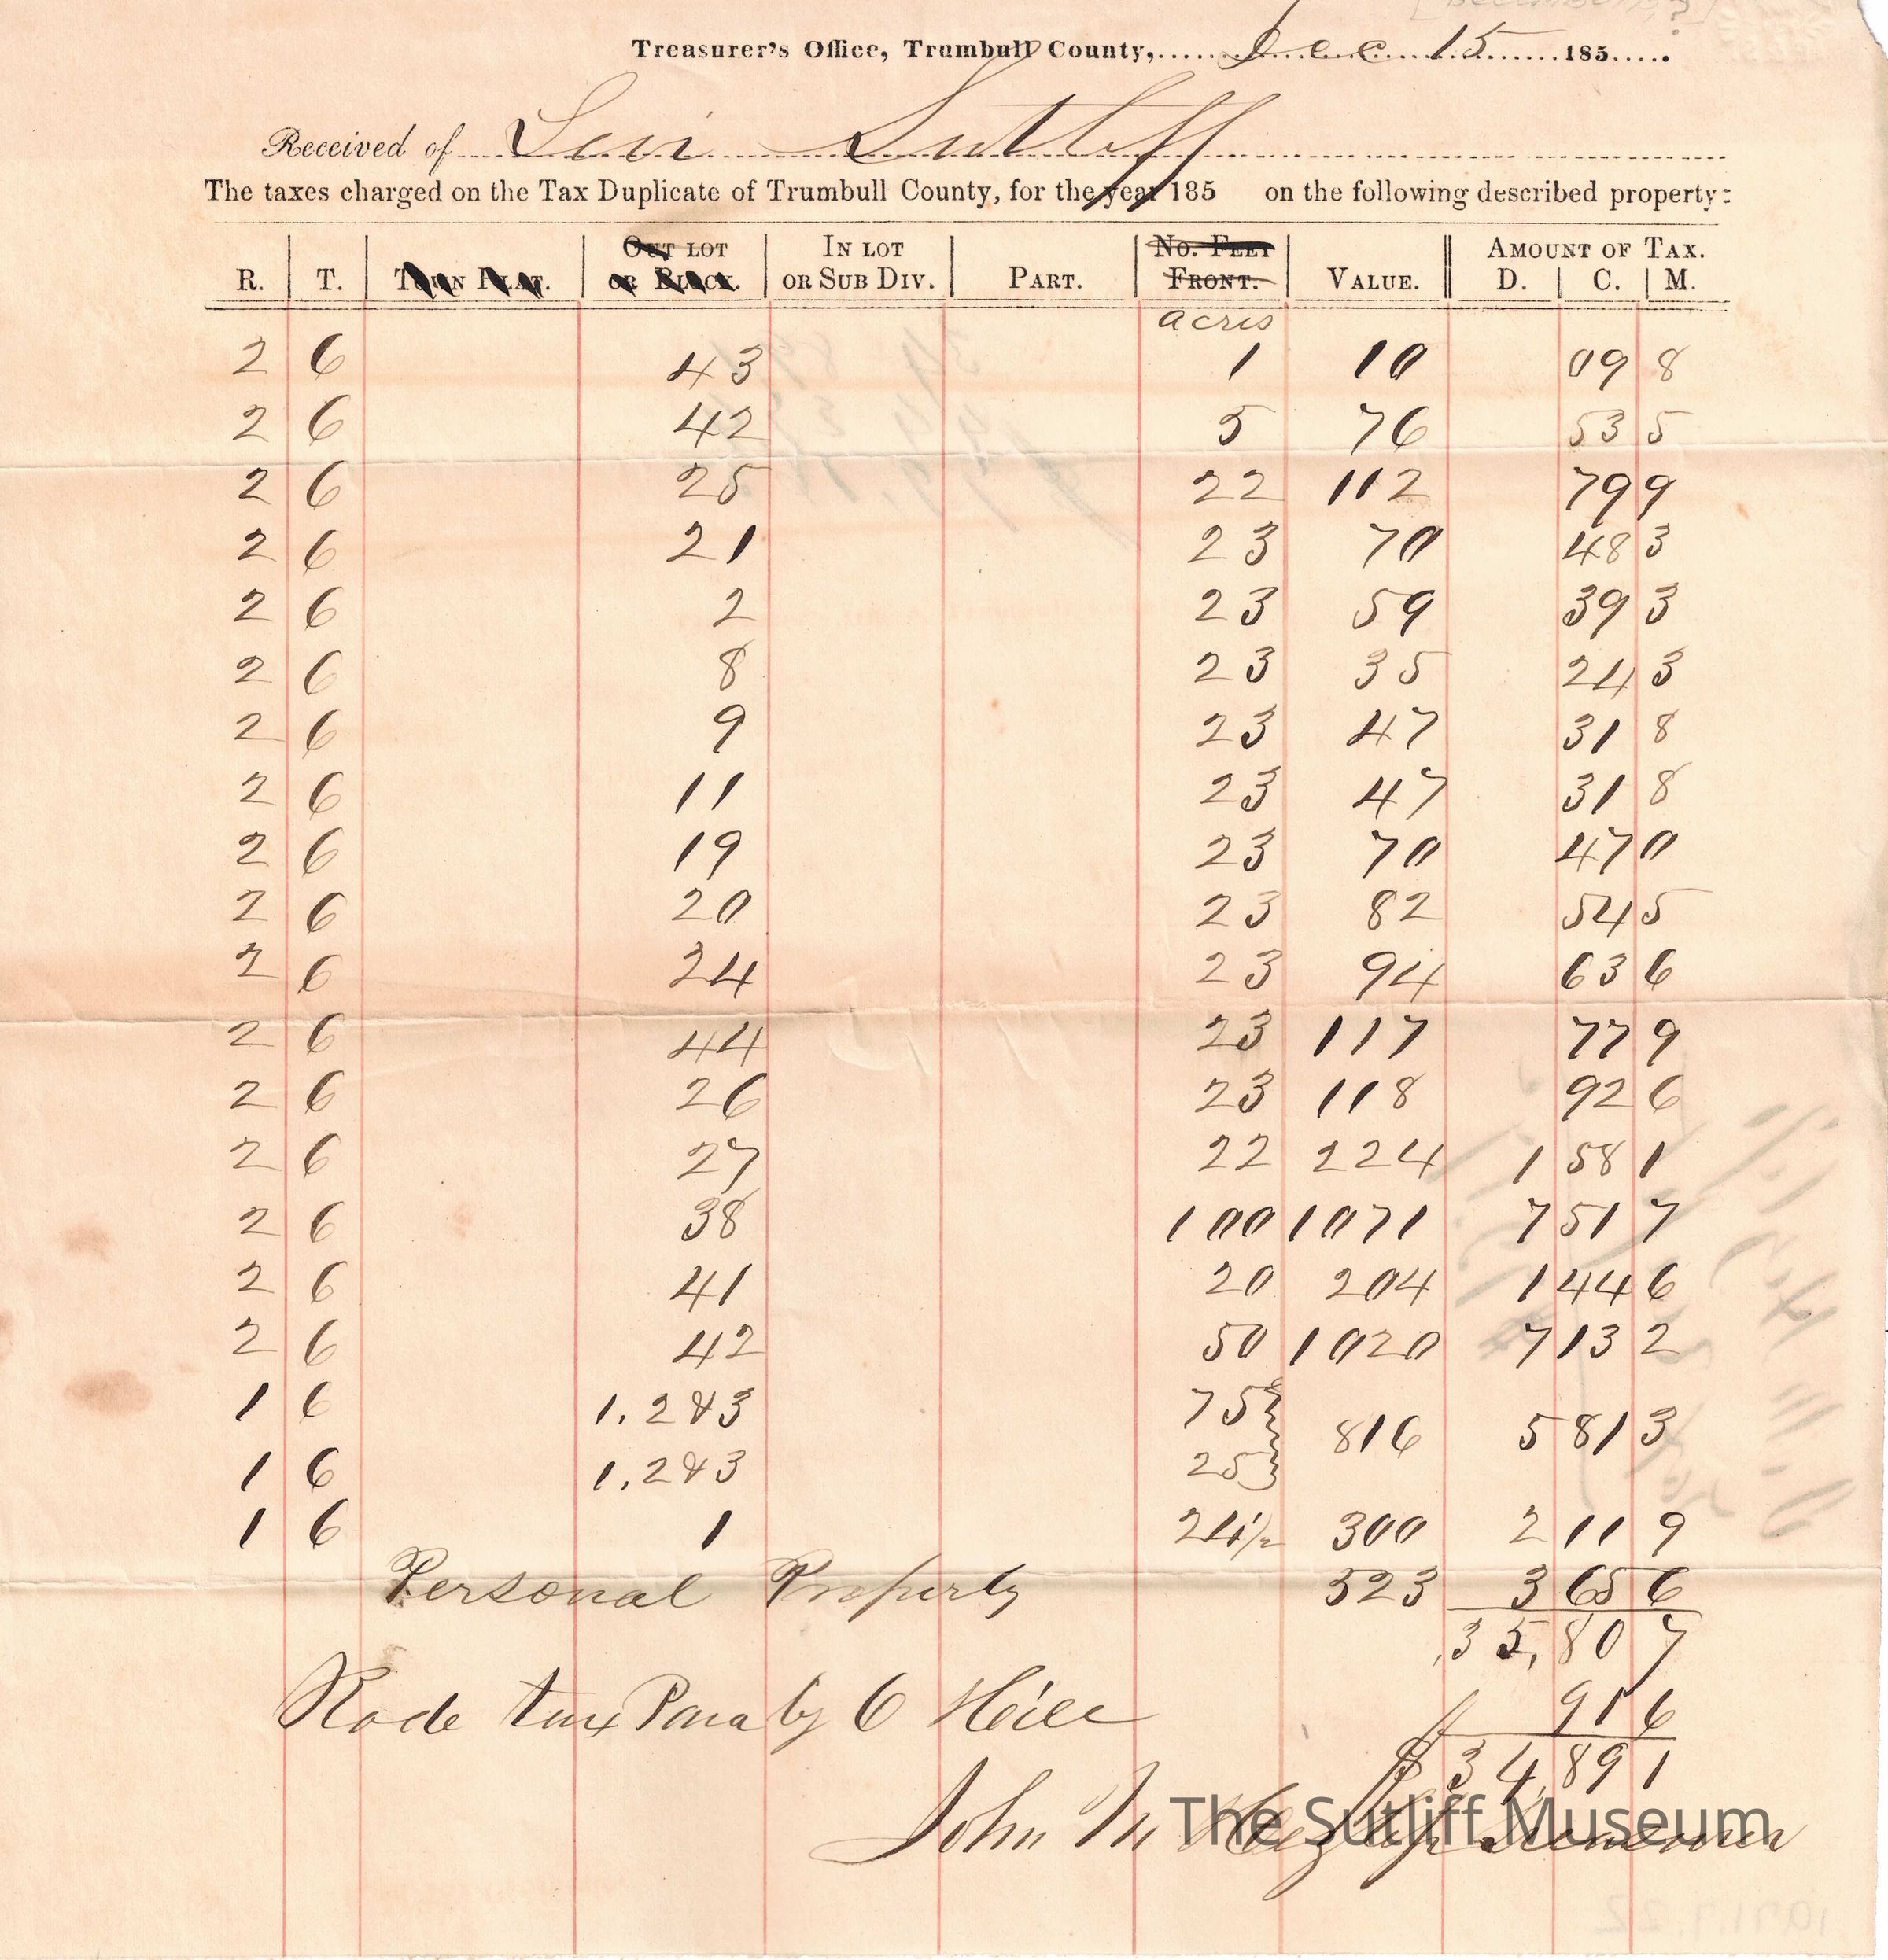 Treasurer's Office, Trumbull County, Dec 15 185
Received of Levi Sutliff
The taxes charged on the Tax Duplicate of Trumbull County, for the year 185 on the following described property:
R. T. Town Plat. Out lot or Block. In lot or Sub Div. Part. No. Feet Front. Value. Amount of Tax. D. C. M.
acres
2 6 43 1 10 09 8
2 6 42 5 76 53 5
2 6 25 22 112 79 9
2 6 21 23 70 48 3
2 6 2 23 59 39 3
2 6 8 23 35 24 3
2 6 9 23 47 31 8
2 6 11 23 47 31 8
2 6 19 23 70 47 0
2 6 20 23 82 54 5
2 6 24 23 94 63 6
2 6 44 23 117 77 9
2 6 26 23 118 92 6
2 6 27 22 224 1 58 1
2 6 38 100 1071 7 51 7
2 6 41 20 204 1 44 6
2 6 42 50 1020 7 13 2
1 6 1. 2 & 3 75 } 816 5 81 3
1 6 1. 2 & 3 25 }
1 6 1 24 1/2 300 2 11 9
Personal Property 523 3 65 6
35, 80 7
Rode tax by C Hill 91 6
$ 34, 89 1
John M Treasurer
The Sutliff Museum
1971.1.22